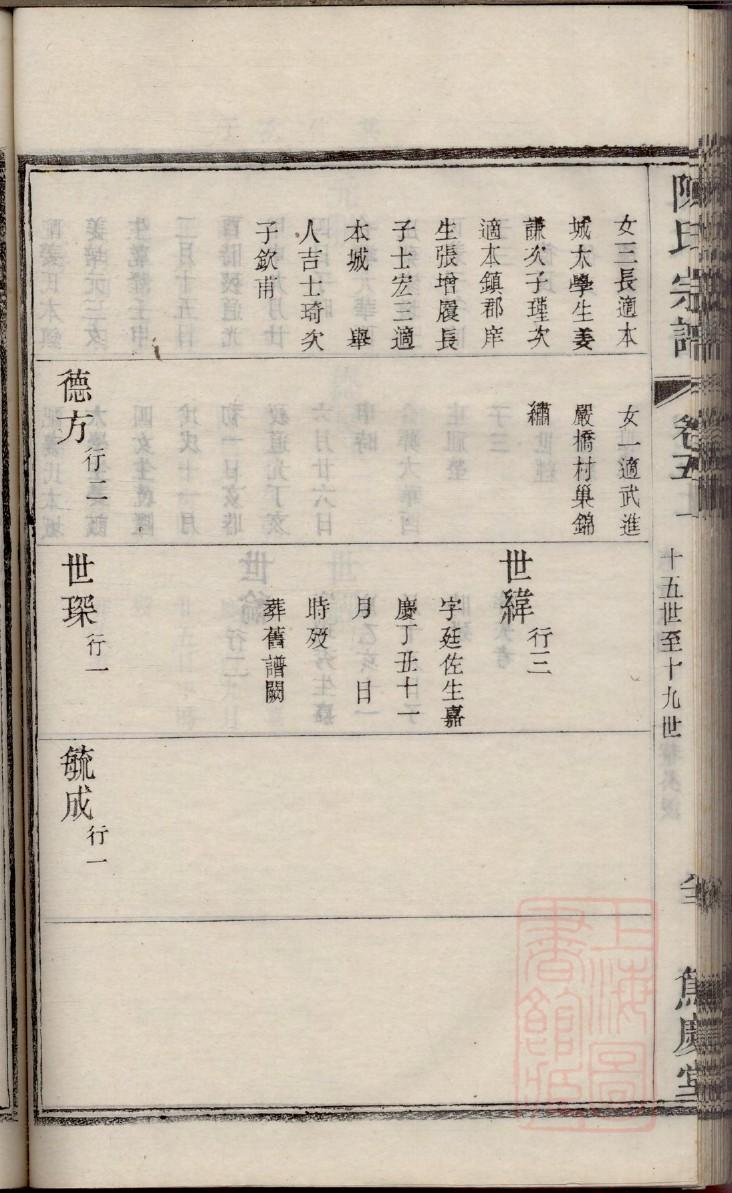 陳氏宗譜
卷五
十五世至十九世
慶堂
女三長適本
城太學生姜
謙次子瑾次
適本鎮郡庠
生張增履長
子士宏三適
本城　舉
人吉士琦次
子欽甫
女一適武進
嚴橋村巢錦
繡
德方行二
世緯行三
字廷佐生嘉
慶丁丑十一
月　日
時歿
葬舊譜闕
世琛行一
毓成行一
上海圖
書館藏